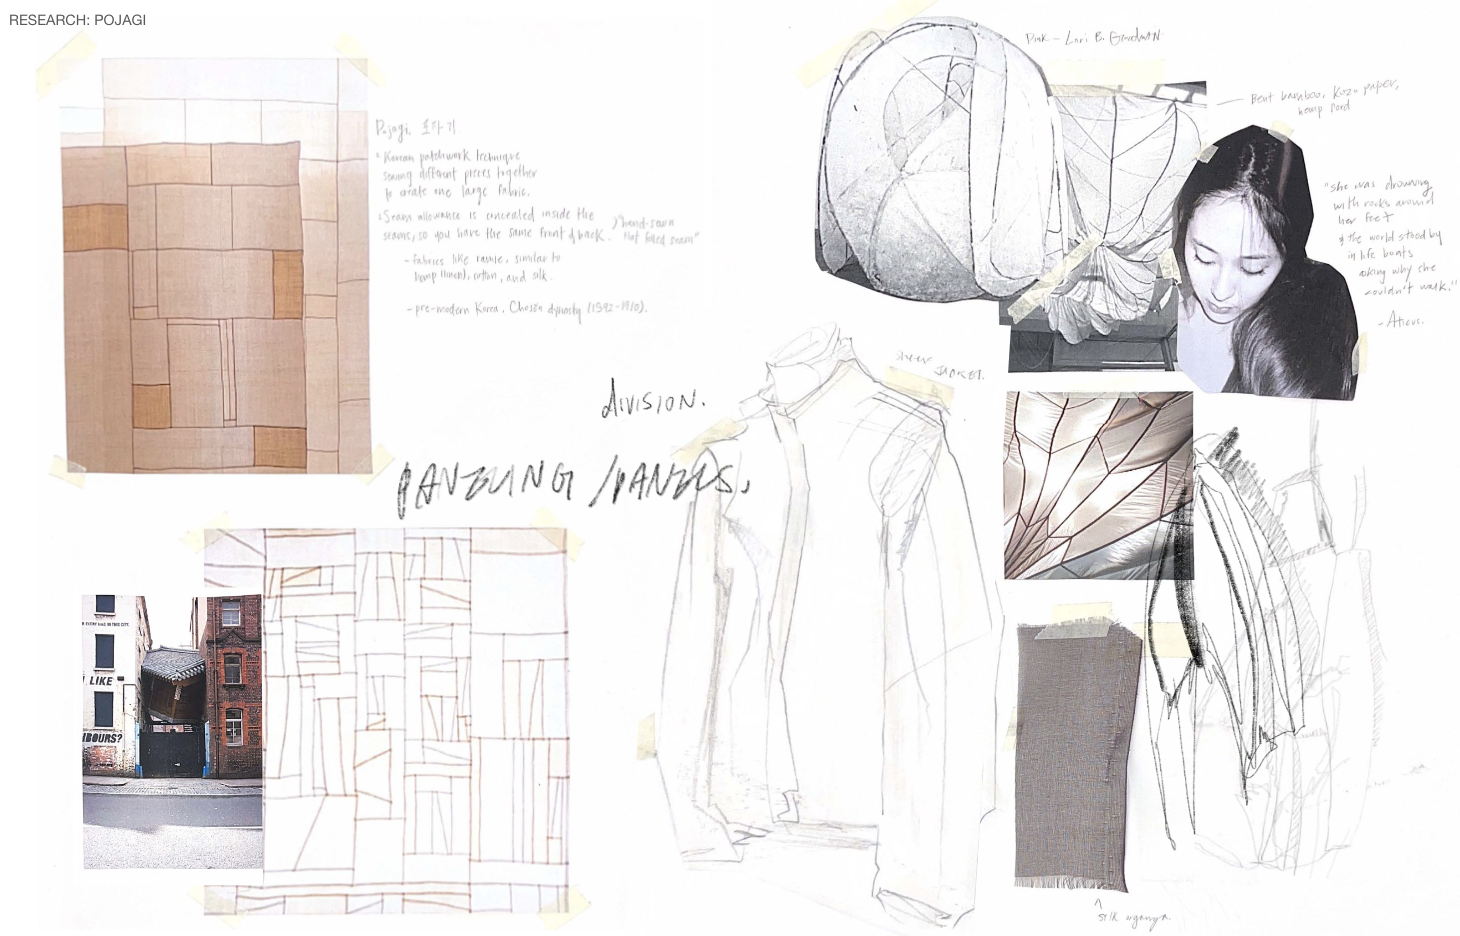 RESEARCH: POJAGI
Pojagi, 보자기
Korean patchwork technique
sewing different pieces together
to create one large fabric.
Seam allowance is concealed inside the
seams, so you have the same front & back.
"hand-sewn
flat felled seam"
- fabrics like ramie, similar to
hemp (linen), cotton, and silk.
- pre-modern Korea, Chosŏn dynasty (1392-1910).
division.
PANELING / PANELS.
I LIKE
BOURS?
Pink - Lori B. Goodman
Bent bamboo, Kozo paper,
hemp cord
"she was drowning
with rocks around
her feet
& the world stood by
in life boats
asking why she
couldn't walk."
- Aticus.
sheer
JACKET.
silk organza.